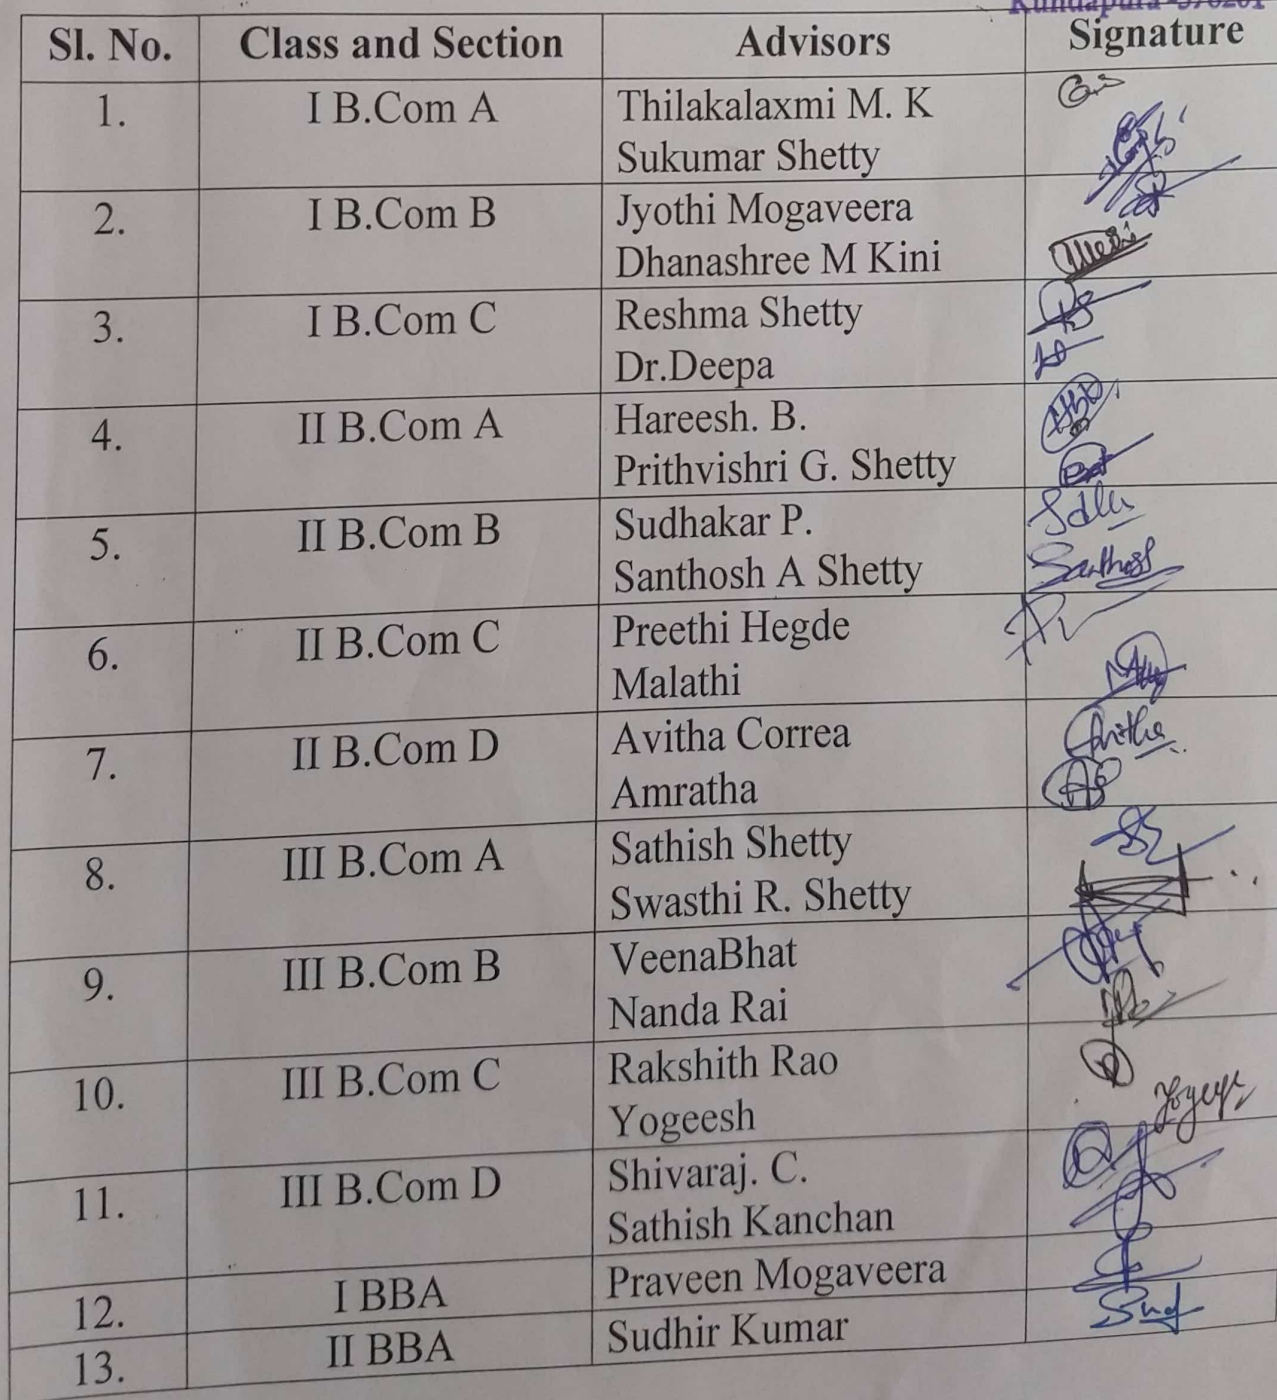 Kundapura -576201
Sl. No. Class and Section Advisors Signature
1. I B.Com A Thilakalaxmi M. K
Sukumar Shetty
2. I B.Com B Jyothi Mogaveera
Dhanashree M Kini
3. I B.Com C Reshma Shetty
Dr.Deepa
4. II B.Com A Hareesh. B.
Prithvishri G. Shetty
5. II B.Com B Sudhakar P.
Santhosh A Shetty Santhosh
6. II B.Com C Preethi Hegde
Malathi
7. II B.Com D Avitha Correa Avitha
Amratha
8. III B.Com A Sathish Shetty
Swasthi R. Shetty
9. III B.Com B VeenaBhat
Nanda Rai
10. III B.Com C Rakshith Rao
Yogeesh
11. III B.Com D Shivaraj. C.
Sathish Kanchan
12. I BBA Praveen Mogaveera
13. II BBA Sudhir Kumar